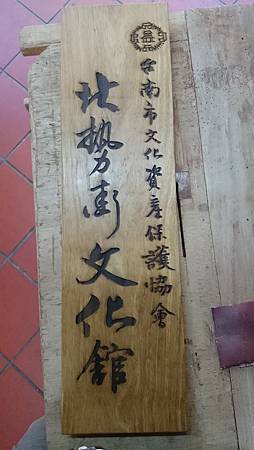 台南市文化資產保護協會
北勢街文化館